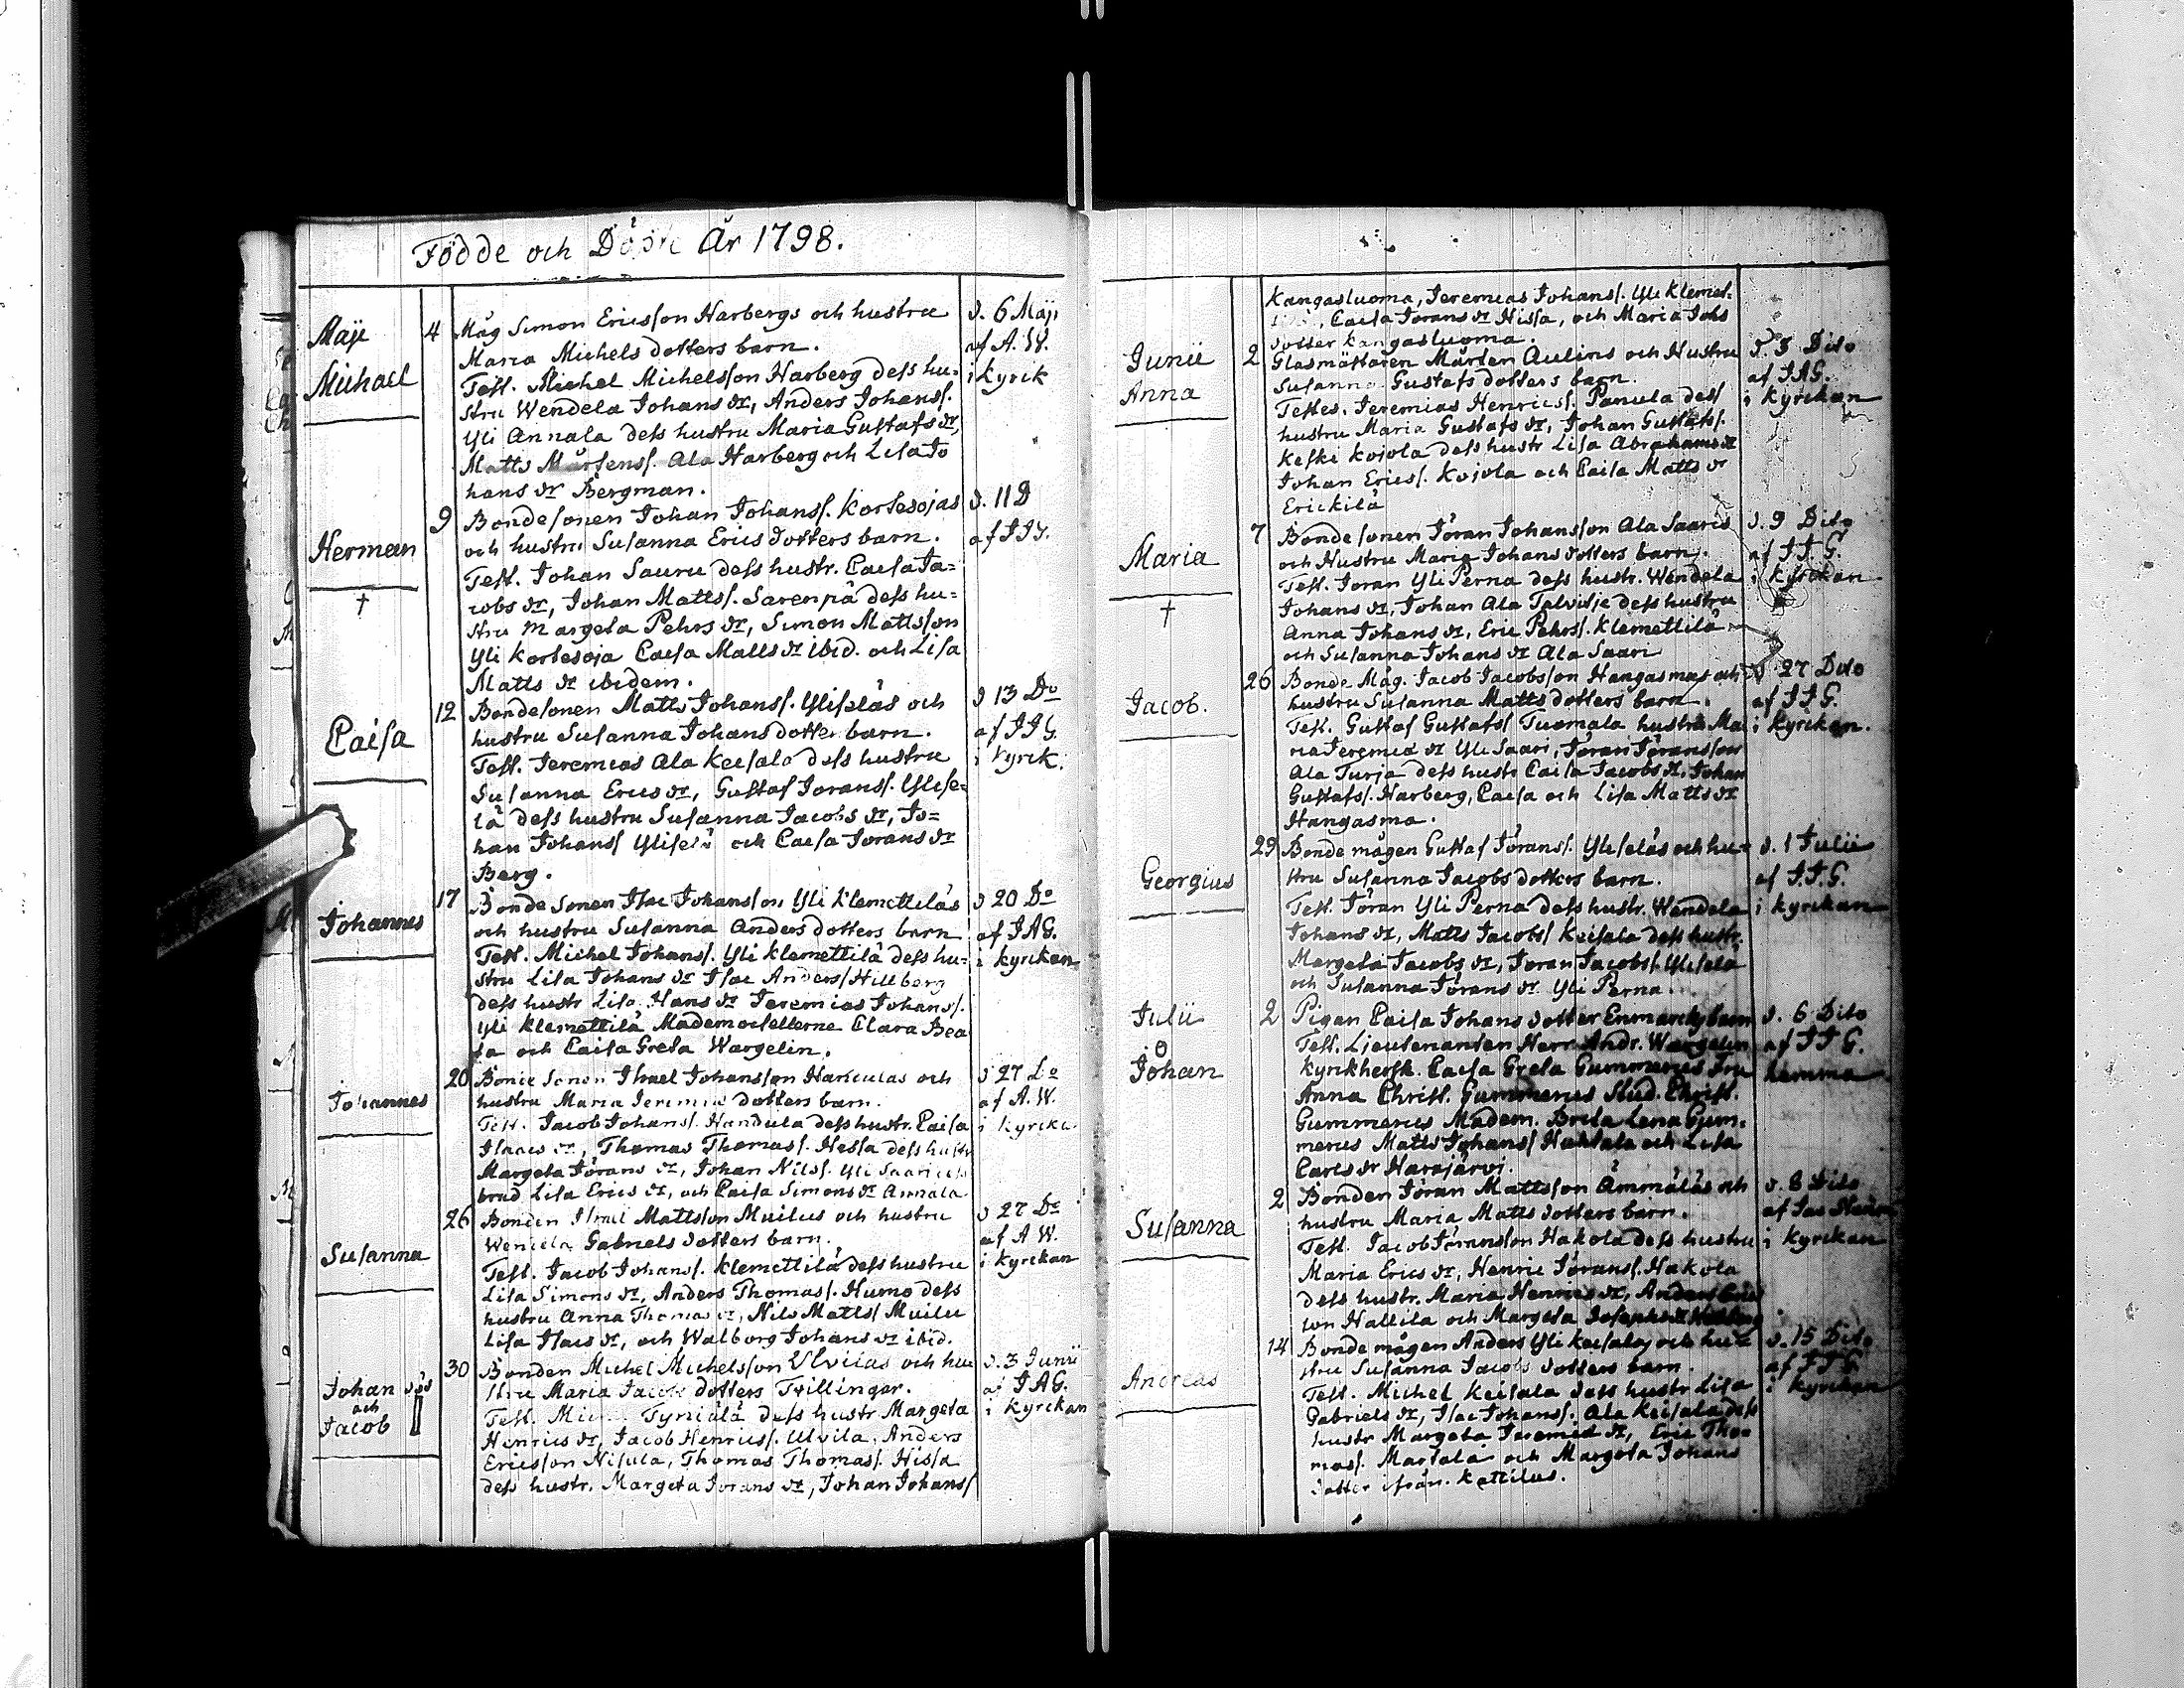 Födde och Döpte År 1798.
Maji 4 Måg Simon Ericsson Harbergs och hustru d. 6 Maji
Maria Michels dotters barn. af A. W.
Michael Test. Michel Michelsson Harberg dess hu- i kyrk
stru Wendela Johans dr, Anders Johanss.
Yli Annala dess hustru Maria Gustafs dr,
Matts Mårtenss. Ala Harberg och Lisa Jo
hans dr Bergman.
9 Bondesonen Johan Johanss. Kortesojas d. 11 D
Herman och hustru Susanna Erics dotters barn. af
Test. Johan Sauru dess hustr. Caisa Ja=
† cobs dr, Johan Mattss. Sarenpä dess hu=
stru Margeta Pehrs dr, Simon Mattsson
Yli Kortesoja Caisa Matts dr ibid. och Lisa
Matts dr ibidem.
12 Bondesonen Matts Johanss. Yliseläs och d 13 Do
Caisa hustru Susanna Johans dotters barn. af JJG
Test. Jeremias Ala Keisala dess hustru i kyrk.
Susanna Erics dr, Gustaf Jöranss. Ylise=
lä dess hustru Susanna Jacobs dr, Jo=
han Johanss Yliselä och Caisa Jörans dr
Berg.
17 Bonde sonen Isac Johansson Yli Klemettiläs d 20 Do
Johannes och hustru Susanna Anders dotters barn af JAG.
Test. Michel Johanss. Yli Klemettilä dess hu- i kyrkan
stru Lisa Johans dr Isac Anderss Hillberg
dess hustr Lisa Hans dr Jeremias Johanss.
Yli Klemettilä Mademoisellerne Clara Bea
ta och Caisa Greta Wargelin.
20 Bonde Sonen Israel Johansson Handulas och d 27 Do
Johannes hustru Maria Jeremiæ dotters barn. af A. W.
Test. Jacob Johanss. Handula dess hustr. Caisa i kyrka
Isaacs dr, Thomas Thomass. Hessa dess hustr
Margeta Jörans dr, Johan Nilss. Yli Saari dess
brud Lisa Erics dr, och Caisa Simons dr Annala
26 Bonden Israel Mattsson Muilus och hustru d 27 Do
Susanna Wendela Gabriels dotters barn. af A W.
Test. Jacob Johanss. Klemettilä dess hustru i kyrkan
Lisa Simons dr, Anders Thomass. Humo dess
hustru Anna Thomas dr, Nils Mattss Muilu
Lisa Isacs dr, och Walborg Johans dr ibid.
30 Bonden Michel Michelsson Ulvilas och hu d. 3 Junii
Johan och Jacob stru Maria Jacobs dotters Tvillingar. af JAG.
Test. Tyniälä dess hustr Margeta i kyrkan
Henrics dr, Jacob Henricss. Ulvila, Anders
Ericsson Nisula, Thomas Thomass. Hissa
dess hustr. Margeta Jörans dr, Johan Johanss
Kangasluoma, Jeremias Johanss. Yli Klemet-
Caisa Jörans dr Hissa, och Maria Johs
dotter Kangasluoma.
Junii 2 Glasmästaren Mårten Aulins och Hustru d. 3 Dito
Anna Susanna Gustafs dotters barn. af JAG.
Testes. Jeremias Henricss. Panula dess i kyrkan
hustru Maria Gustafs dr, Johan Gustafss.
Keski Kojola dess hustr Lisa Abrahams dr
Johan Ericss. Kojola och Caisa Matts dr
Erickilä
7 Bonde sonen Jöran Johansson Ala Saaris d. 9 Dito
Maria och Hustru Maria Johans dotters barn. af J J. G.
Test. Jöran Yli Perna dess hustr. Wendela i kyrkan
† Johans dr, Johan Ala Talvitje dess hustru
Anna Johans dr, Eric Pehrss. Klemettilä
och Susanna Johans dr Ala Saari
26 Bonde Måg. Jacob Jacobsson Hangasmas och d 27 Dito
Jacob. hustru Susanna Matts dotters barn. af J J G.
Test. Gustaf Gustafss Tuomala hustru Ma i kyrkan.
ria Jeremiæ dr Yli Saari, Jöran Jöransson
Ala Turja dess hustr Caisa Jacobs dr, Johan
Gustafss. Harberg, Caisa och Lisa Matts dr
Hangasma.
29 Bonde mågen Gustaf Jöranss. Yliseläs och hu- d. 1 Julii
Georgius stru Susanna Jacobs dotters barn. af J. J. G.
Test. Jöran Yli Perna dess hustr. Wendela i kyrkan
Johans dr, Matts Jacobss Keisala dess hustr.
Margeta Jacobs dr, Jöran Jacobss. Yliselä
och Susanna Jörans dr Yli Perna.
Julii 2 Pigan Caisa Johans dotter Enmarcks barn d. 6 Dito
O Test. Lieutenanten Herr Andr. Wargelin af J J G.
Johan Kyrkhersk. Caisa Greta Gummerus Fru hemma
Anna Christ. Gummerus Stud. Christ.
Gummerus Madem. Brita Lena Gum-
merus Matts Johanss Hakkala och Lisa
Carls dr Harajärvi.
2 Bonden Jöran Mattsson Ämmäläs och d. 8 Dito
Susanna hustru Maria Matts dotters barn. af Jac
Test. Jacob Jöransson Hakola dess hustru i kyrkan
Maria Erics dr, Henric Jöranss. Hakola
dess hustr. Maria Henrics dr, Anders Erics
son Hallila och Margeta Josephs dr
14 Bonde mågen Anders Yli Keisalas och hu- d. 15 Dito
Andreas stru Susanna Jacobs dotters barn. af J J G.
Test. Michel Keisala dess hustr Lisa i kyrkan
Gabriels dr, Isac Johanss. Ala Keisala dess
hustr Margeta Jeremiæ dr, Eric Tho-
mass. Martala och Margeta Johans
dotter ifrån. Kattilus.